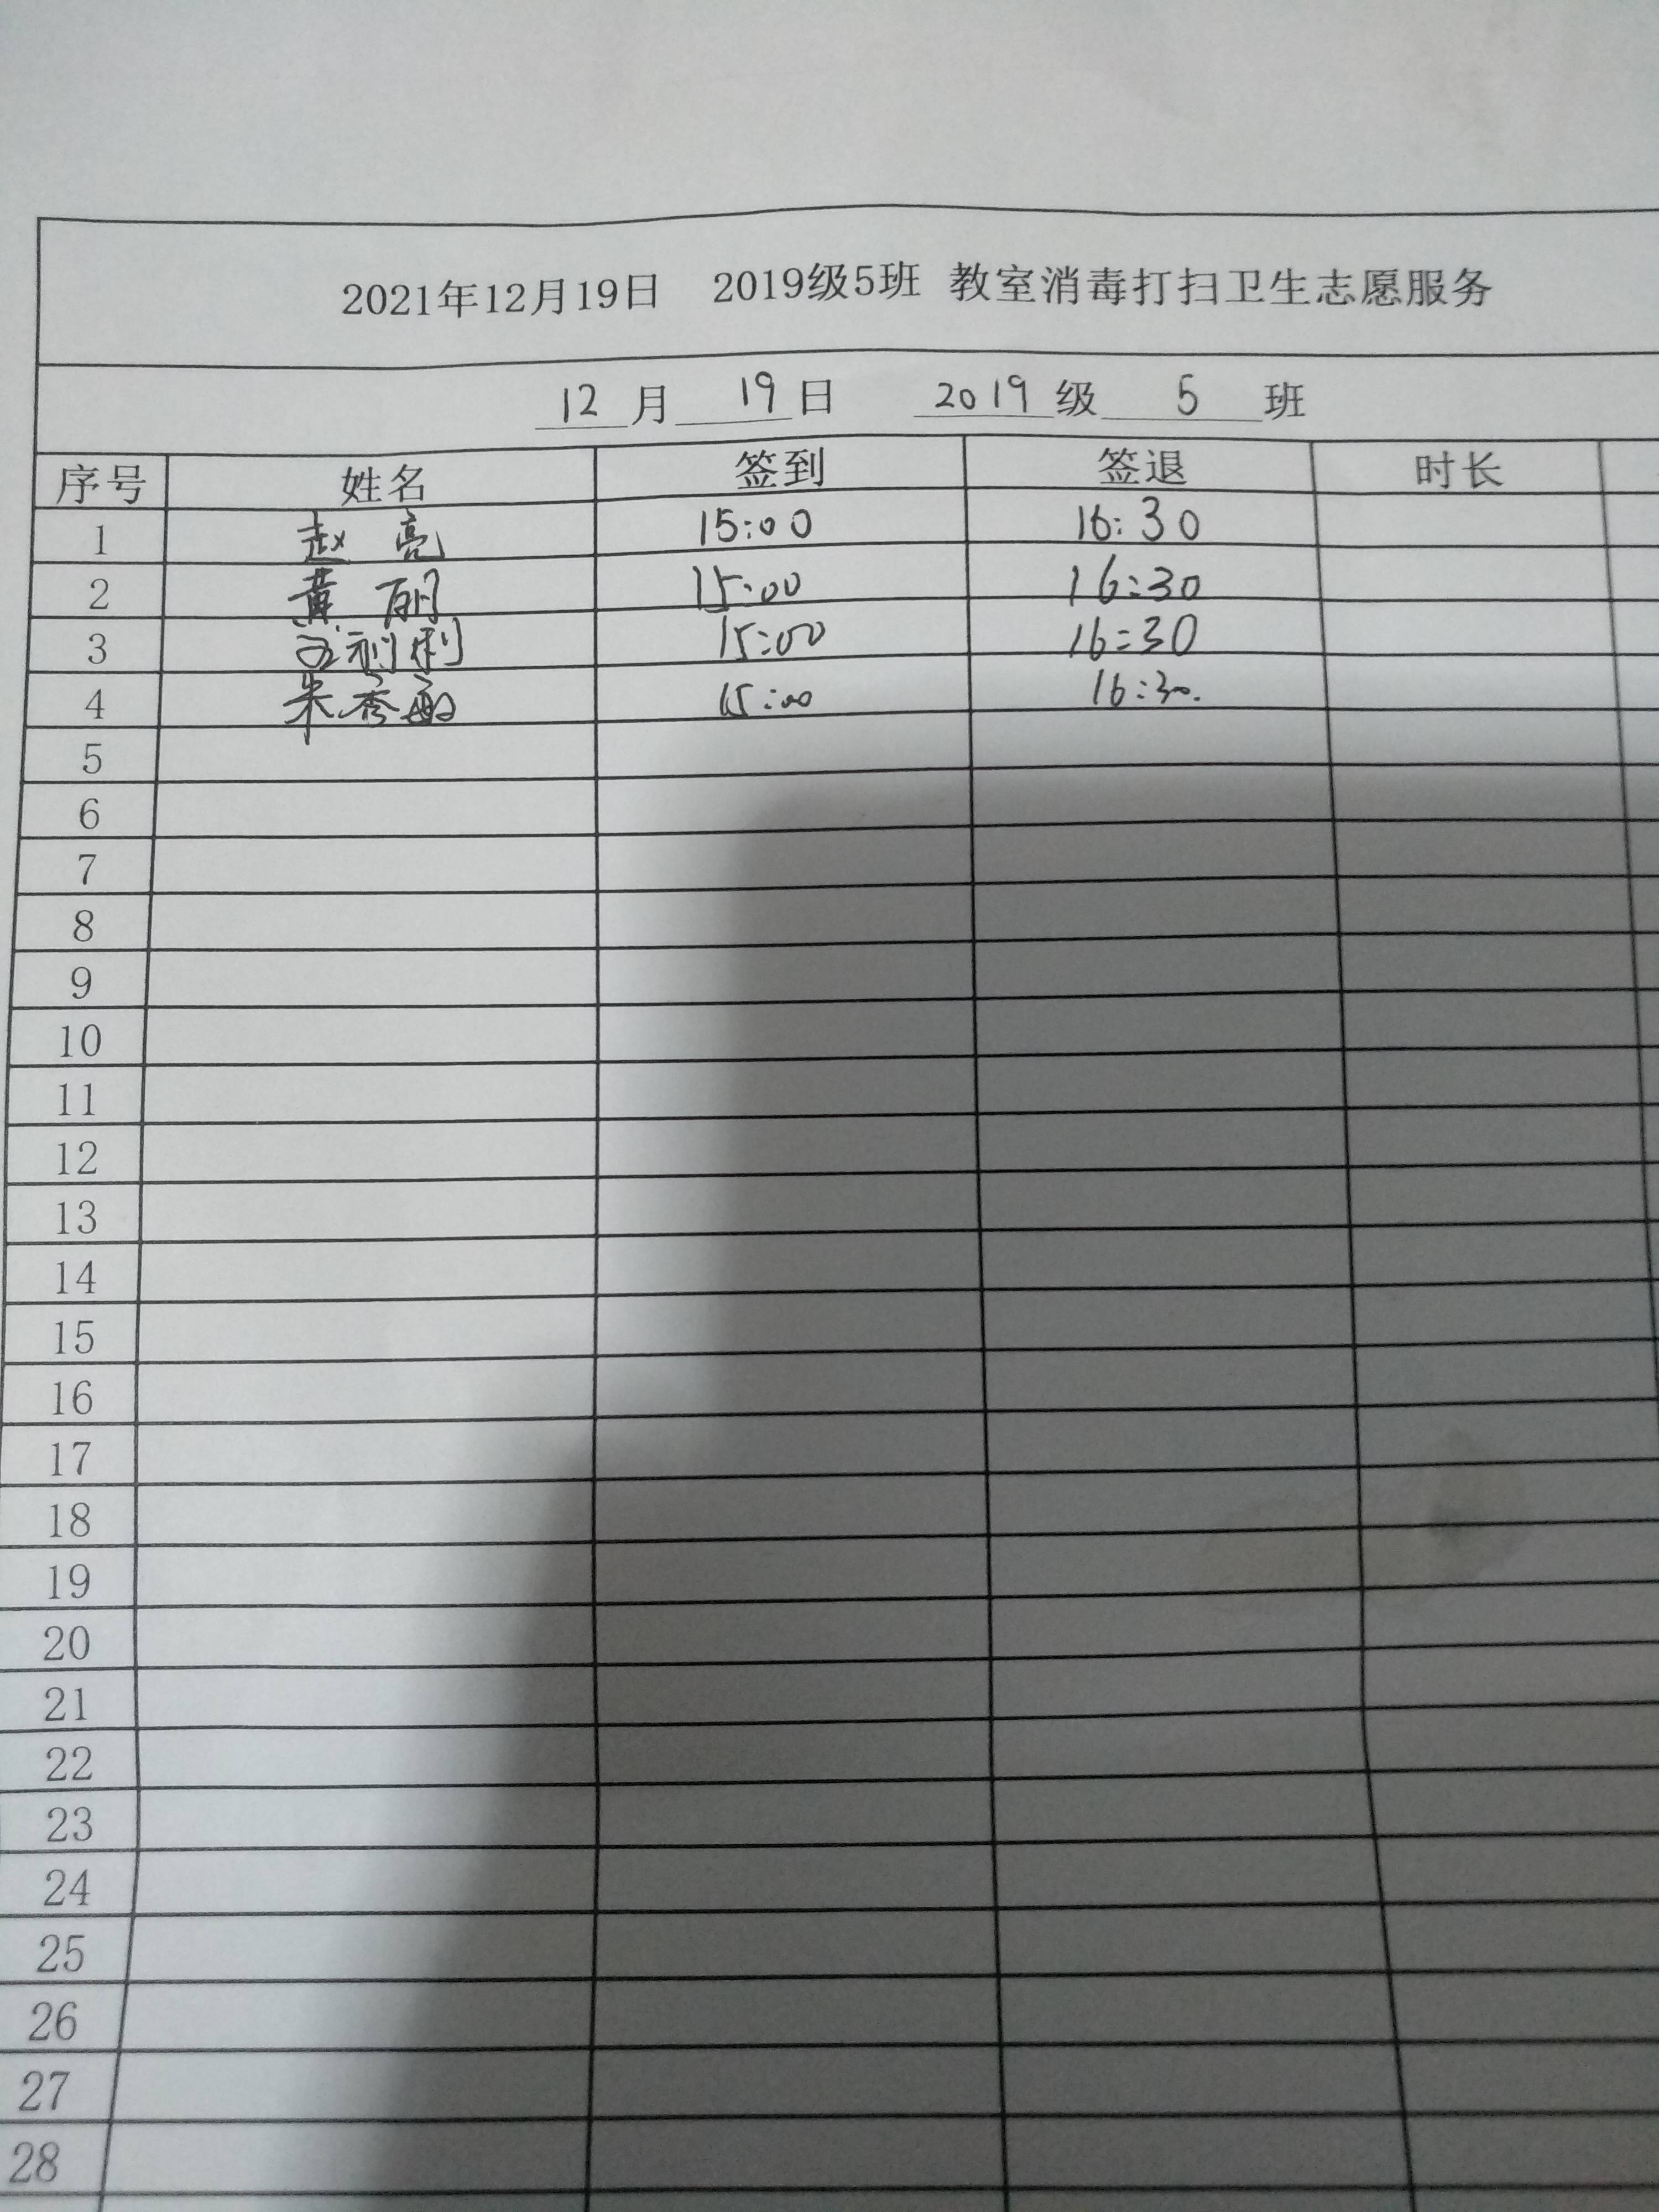 2021年12月19日 2019级5班 教室消毒打扫卫生志愿服务
12 月 19 日 2019 级 5 班
序号 姓名 签到 签退 时长
1 赵亮 15:00 16:30
2 黄丽 15:00 16:30
3 利利 15:00 16:30
4 朱秀敏 15:00 16:30.
5
6
7
8
9
10
11
12
13
14
15
16
17
18
19
20
21
22
23
24
25
26
27
28